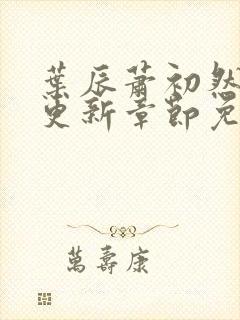 葉辰蕭初然
更新章節免
萬壽康